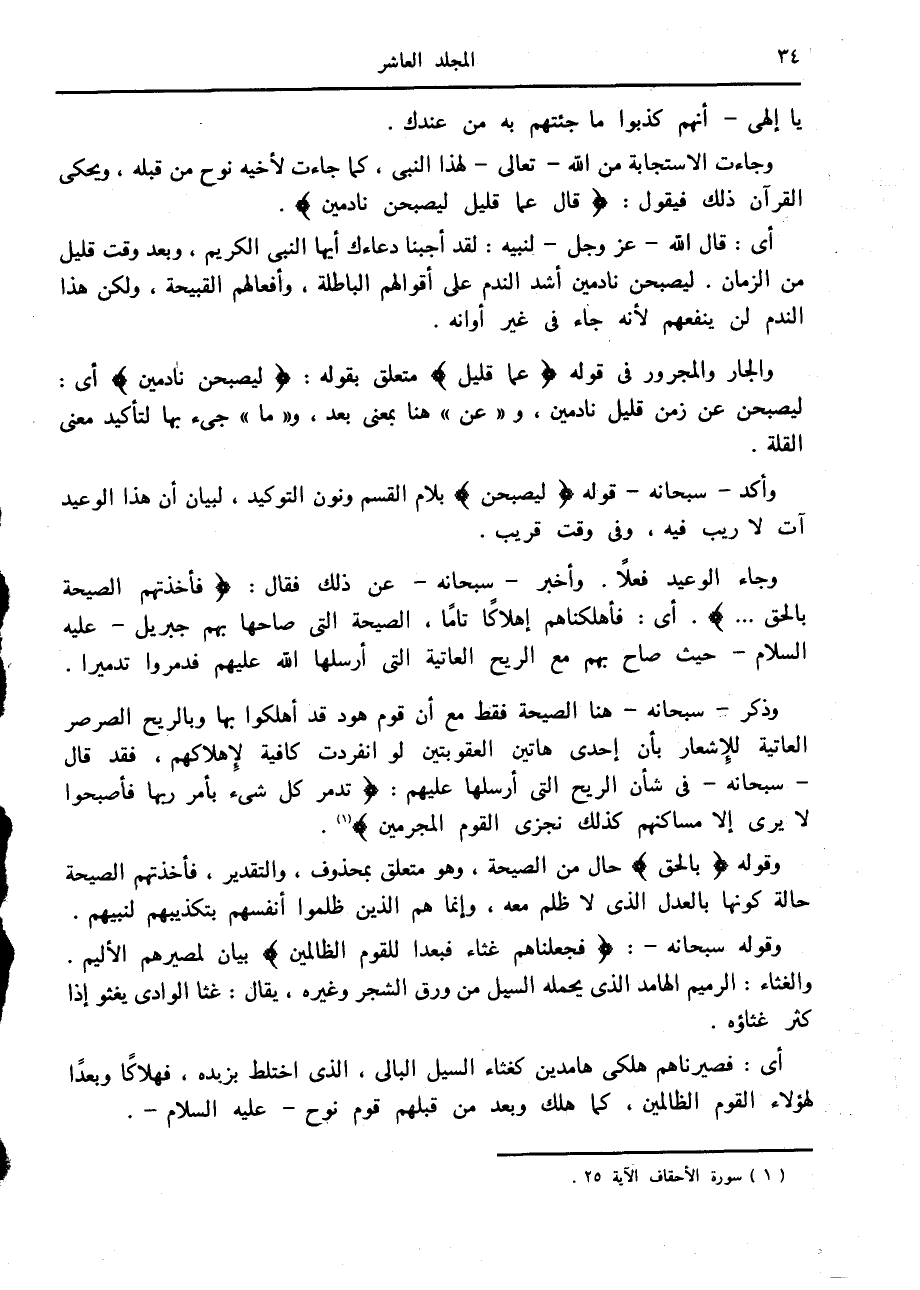 ٣٤
المجلد العاشر
يا إلهى – أنهم كذبوا ما جئتهم به من عندك .
وجاءت الاستجابة من الله – تعالى – لهذا النبى ، كما جاءت لأخيه نوح من قبله ، ويحكى
القرآن ذلك فيقول : ﴿ قال عما قليل ليصبحن نادمين ﴾ .
أى : قال الله – عز وجل – لنبيه : لقد أجبنا دعاءك أيها النبى الكريم ، وبعد وقت قليل
من الزمان . ليصبحن نادمين أشد الندم على أقوالهم الباطلة ، وأفعالهم القبيحة ، ولكن هذا
الندم لن ينفعهم لأنه جاء فى غير أوانه .
والجار والمجرور فى قوله ﴿ عما قليل ﴾ متعلق بقوله : ﴿ ليصبحن نادمين ﴾ أى :
ليصبحن عن زمن قليل نادمين ، و « عن » هنا بمعنى بعد ، و« ما » جىء بها لتأكيد معنى
القلة .
وأكد – سبحانه – قوله ﴿ ليصبحن ﴾ بلام القسم ونون التوكيد ، لبيان أن هذا الوعيد
آت لا ريب فيه ، وفى وقت قريب .
وجاء الوعيد فعلًا . وأخبر – سبحانه – عن ذلك فقال : ﴿ فأخذتهم الصيحة
بالحق ... ﴾ . أى : فأهلكناهم إهلاكًا تامًا ، الصيحة التى صاحها بهم جبريل – عليه
السلام – حيث صاح بهم مع الريح العاتية التى أرسلها الله عليهم فدمروا تدميرا .
وذكر – سبحانه – هنا الصيحة فقط مع أن قوم هود قد أهلكوا بها وبالريح الصرصر
العاتية للإِشعار بأن إحدى هاتين العقوبتين لو انفردت كافية لإِهلاكهم ، فقد قال
– سبحانه – فى شأن الريح التى أرسلها عليهم : ﴿ تدمر كل شىء بأمر ربها فأصبحوا
لا يرى إلا مساكنهم كذلك نجزى القوم المجرمين ﴾(١) .
وقوله ﴿ بالحق ﴾ حال من الصيحة ، وهو متعلق بمحذوف ، والتقدير ، فأخذتهم الصيحة
حالة كونها بالعدل الذى لا ظلم معه ، وإنما هم الذين ظلموا أنفسهم بتكذيبهم لنبيهم .
وقوله سبحانه – : ﴿ فجعلناهم غثاء فبعدا للقوم الظالمين ﴾ بيان لمصيرهم الأليم .
والغثاء : الرميم الهامد الذى يحمله السيل من ورق الشجر وغيره ، يقال : غثا الوادى يغثو إذا
كثر غثاؤه .
أى : فصيرناهم هلكى هامدين كغثاء السيل البالى ، الذى اختلط بزبده ، فهلاكًا وبعدًا
لهؤلاء القوم الظالمين ، كما هلك وبعد من قبلهم قوم نوح – عليه السلام – .
( ١ ) سورة الأحقاف الآية ٢٥ .